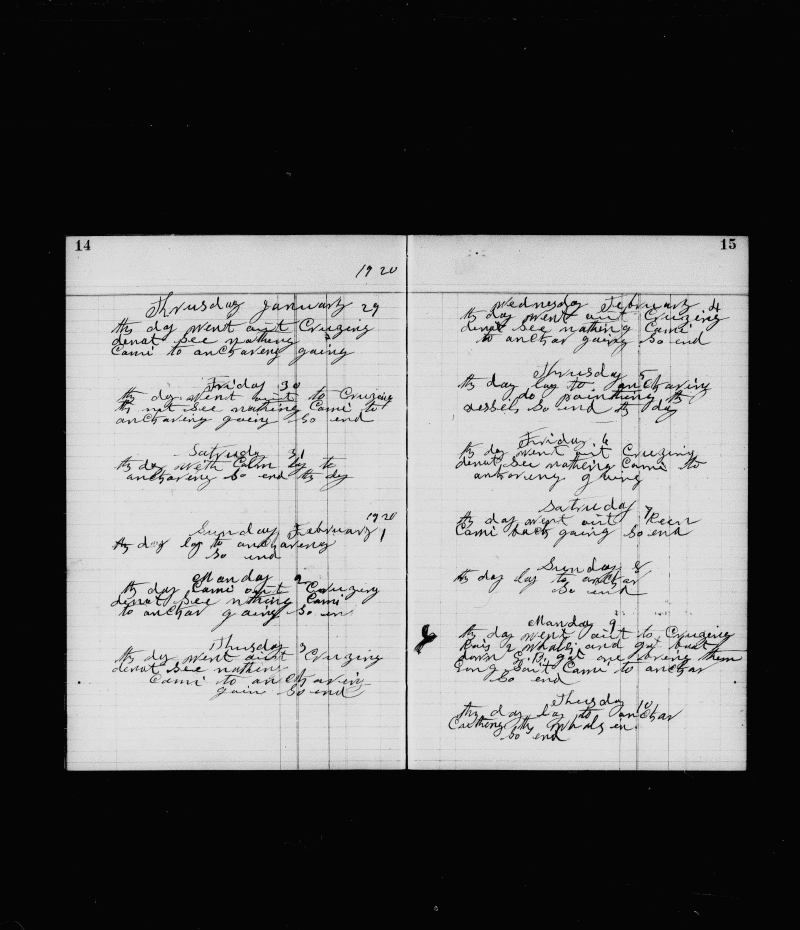 14
1920
Thrusday January 29
th day went aut Cruzing
denot see nathing
Cami to anCharing gaing
Friday 30
th day went aut to Cruzing
th not see nathing Cami to
anCharing gaing So end
Satruday 31
th day with Calm lay to
anCharing So end th day
1920
Sunday February 1
th day lay to anCharing
So end
Manday 2
th day Cami aut Cruizing
denat see nathing Cami
to anChar gaing So en
Thusday 3
th day went aut Cruzing
denat see nathing
Cami to anCharin
gain So end
15
Wednesday February 4
th day went aut Cruzing
denat see nathing Cami
to anChar gaing So end
Thrusday 5
th day lay to anCharing
do painthing th
vessel So end th day
Friday 6
th day went aut Cruzing
denat see nathing Cami to
anCharing gaing
Satruday 7
th day went aut
Cami back gaing So end
Sunday 8
th day lay to anChar
So end
Manday 9
th day went aut to Cruzing
Rais 2 whals and gat
dawn gat one bring them
Cami to anChar
So end
Thusday 10
th day lay to anChar
th whals en
So end